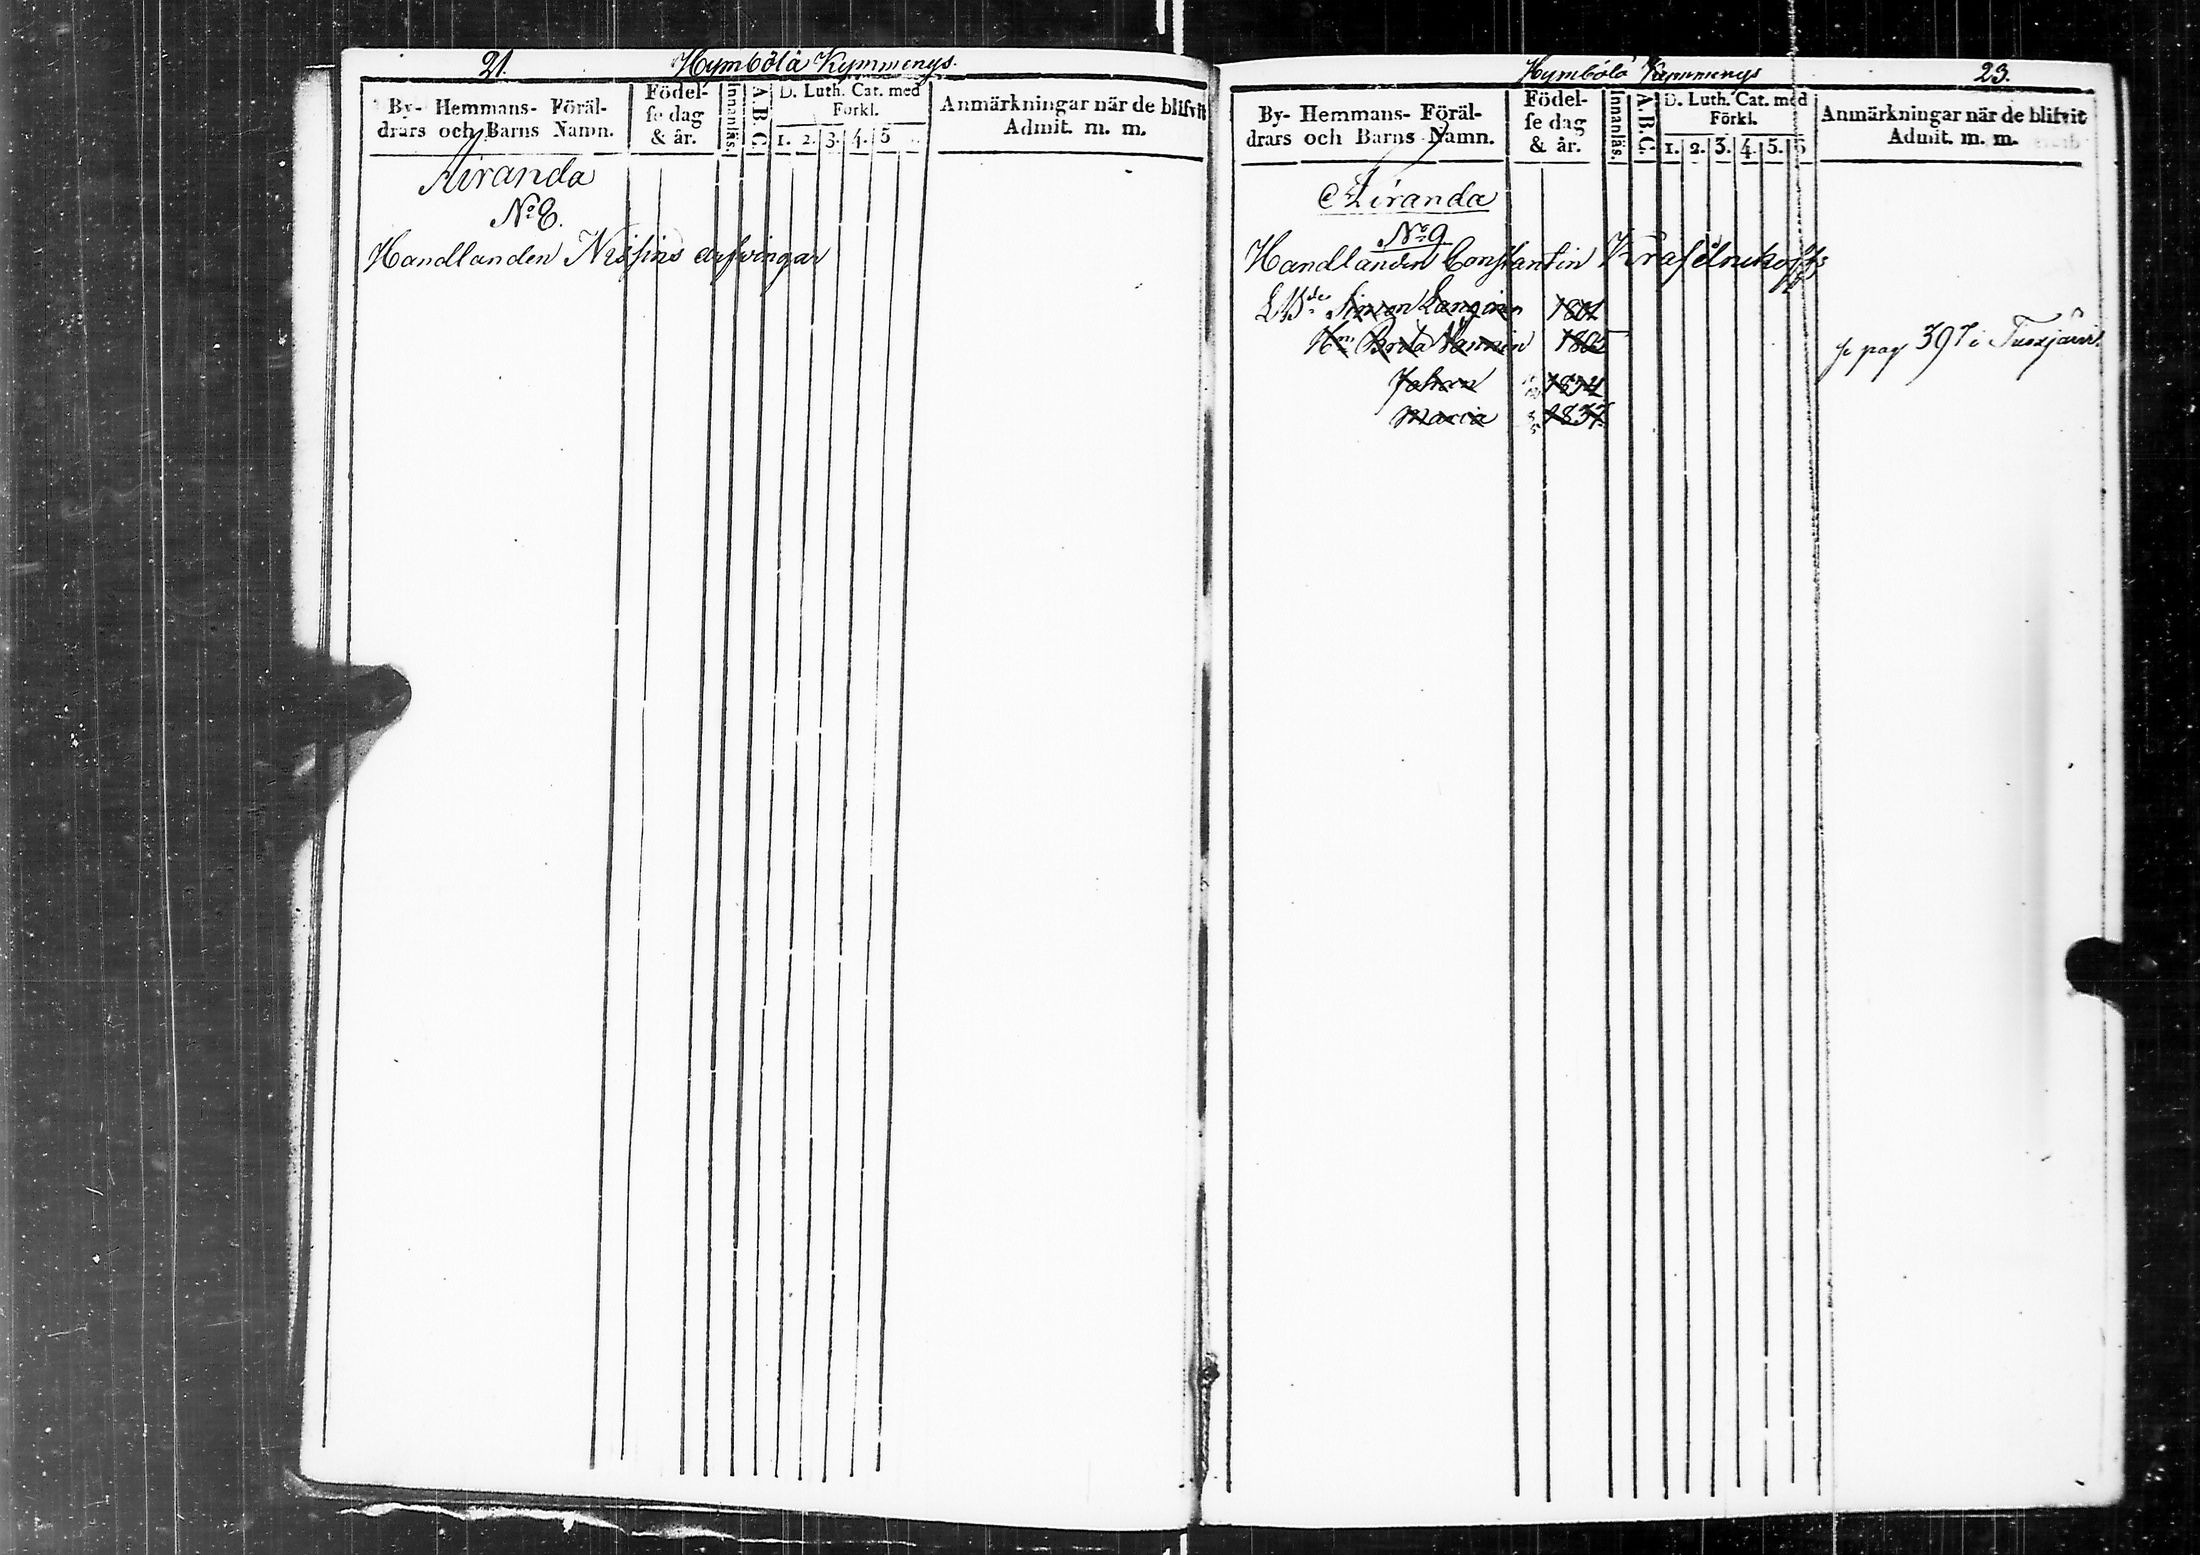 21.
Hymbölä Kymmenys.
By- Hemmans- Föräl-
drars och Barns Namn.
Födel-
se dag
& år.
Innanläs.
A.B.C.
D. Luth. Cat. med
Förkl.
1. 2. 3. 4. 5
Anmärkningar när de blifvit
Admit. m. m.
Airanda
No 8.
Handlanden arfvingar
Hymbölä Kymmenys
23.
By- Hemmans- Föräl-
drars och Barns Namn.
Födel-
se dag
& år.
Innanläs.
A.B.C.
D. Luth. Cat. med
Förkl.
1. 2. 3. 4. 5. 6
Anmärkningar när de blifvit
Admit. m. m.
Airanda
No 9
Handlanden Constantin
Simon
Hu Brita 1805
se pag 397 i
Johan
Maria 1837